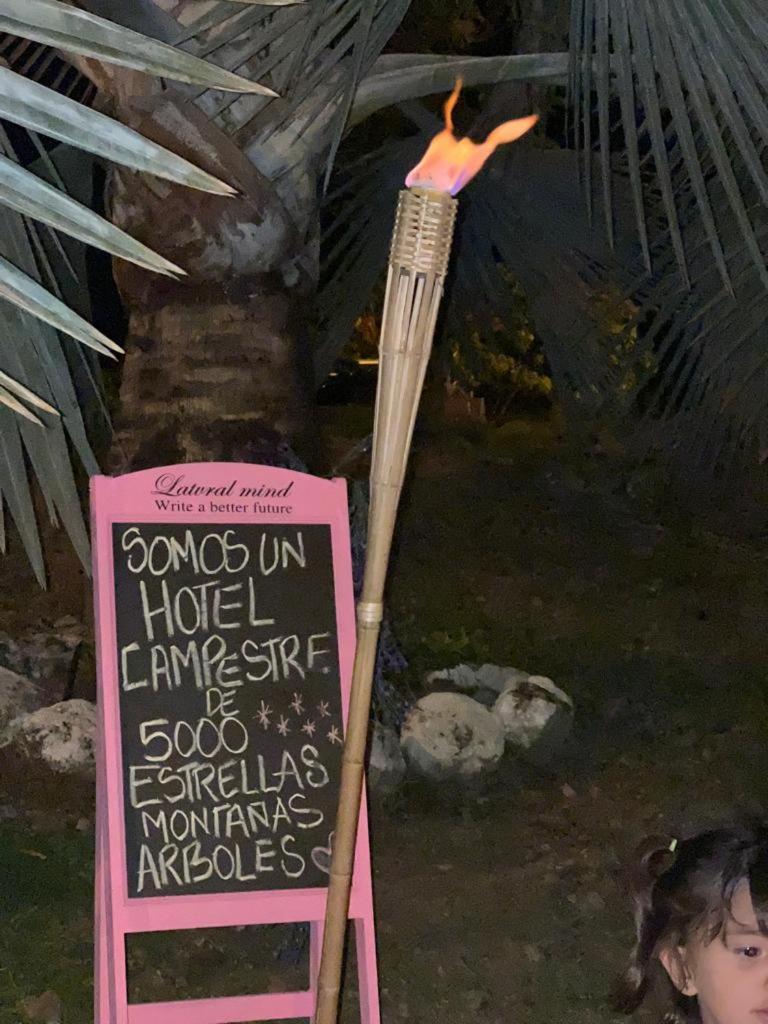 Latvral mind
Write a better future
SOMOS UN
HOTEL
CAMPESTRE
DE
5000
ESTRELLAS
MONTAÑAS
ARBOLES